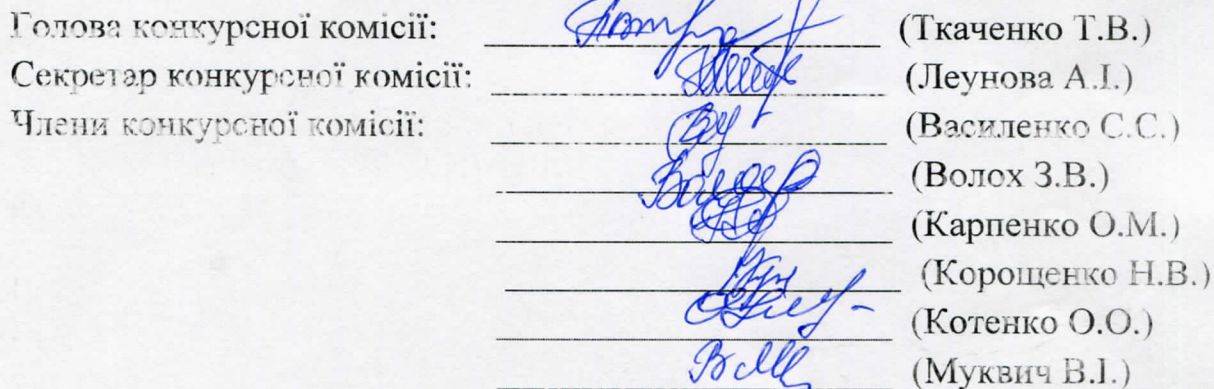 Голова конкурсної комісії: (Ткаченко Т.В.)
Секретар конкурсної комісії: (Леунова А.І.)
Члени конкурсної комісії: (Василенко С.С.)
(Волох З.В.)
(Карпенко О.М.)
(Корощенко Н.В.)
(Котенко О.О.)
(Муквич В.І.)